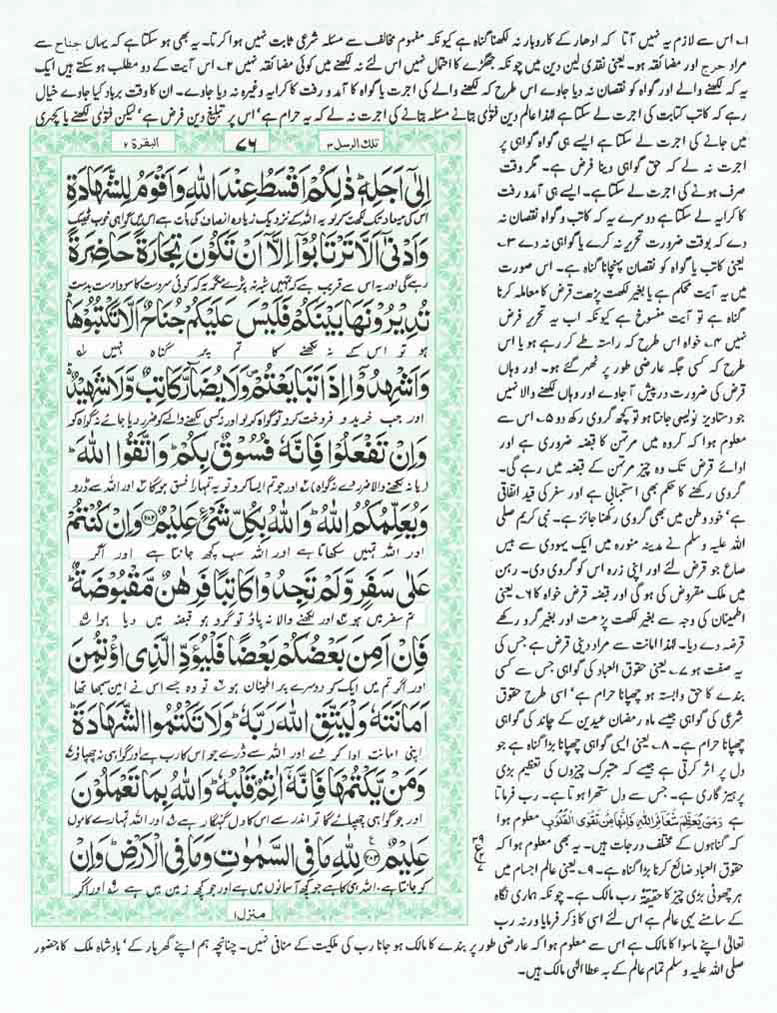 ۱۔ اس سے لازم یہ نہیں آتا کہ ادھار کے کاروبار نہ لکھنا گناہ ہے کیونکہ مفہوم مخالف سے مسئلہ شرعی ثابت نہیں ہوا کرتا۔ یہ بھی ہو سکتا ہے کہ یہاں جناح سے
مراد حرج اور مضائقہ ہو۔ یعنی نقدی لین دین میں چونکہ جھگڑے کا احتمال نہیں اس لئے نہ لکھنے میں کوئی مضائقہ نہیں ۲۔ اس آیت کے دو مطلب ہو سکتے ہیں ایک
یہ کہ لکھنے والے اور گواہ کو نقصان نہ دیا جاوے اس طرح کہ لکھنے والے کی اجرت یا گواہ کا آمد و رفت کا کرایہ وغیرہ نہ دیا جاوے۔ ان کا وقت برباد کیا جاوے خیال
رہے کہ کاتب کتابت کی اجرت لے سکتا ہے لہٰذا عالم دین فتویٰ بتانے مسئلہ بتانے کی اجرت نہ لے کہ یہ حرام ہے' اس پر تبلیغ دین فرض ہے' لیکن فتویٰ لکھنے یا کچہری
میں جانے کی اجرت لے سکتا ہے ایسے ہی گواہ گواہی پر
اجرت نہ لے کہ حق گواہی دینا فرض ہے۔ مگر وقت
صرف ہونے کی اجرت لے سکتا ہے۔ ایسے ہی آمد و رفت
کا کرایہ لے سکتا ہے دوسرے یہ کہ کاتب و گواہ نقصان نہ
دے کہ بوقت ضرورت تحریر نہ کرے یا گواہی نہ دے ۳۔
یعنی کاتب یا گواہ کو نقصان پہنچانا گناہ ہے۔ اس صورت
میں یہ آیت محکم ہے یا بغیر لکھت پڑھت قرض کا معاملہ کرنا
گناہ ہے تو آیت منسوخ ہے کیونکہ اب یہ تحریر فرض
نہیں ۴۔ خواہ اس طرح کہ راستہ طے کر رہے ہو یا اس
طرح کہ کسی جگہ عارضی طور پر ٹھہر گئے ہو۔ اور وہاں
قرض کی ضرورت درپیش آ جاوے اور وہاں لکھنے والا نہیں
جو دستاویز نویسی جانتا ہو تو کچھ گروی رکھ دو ۵۔ اس سے
معلوم ہوا کہ گروہ میں مرتہن کا قبضہ ضروری ہے اور
ادائے قرض تک وہ چیز مرتہن کے قبضہ میں رہے گی۔
گروی رکھنے کا حکم بھی استحبابی ہے اور سفر کی قید اتفاقی
ہے' خود وطن میں بھی گروی رکھنا جائز ہے۔ نبی کریم صلی
اللہ علیہ وسلم نے مدینہ منورہ میں ایک یہودی سے بیس
صاع جو قرض لئے اور اپنی زرہ اس کو گروی دی۔ رہن
میں ملک مقروض کی ہوگی اور قبضہ قرض خواہ کا ۶۔ یعنی
اطمینان کی وجہ سے بغیر لکھت پڑھت اور بغیر گرو رکھے
قرضہ دے دیا۔ لہٰذا امانت سے مراد دینی قرض ہے جس کی
یہ صفت ہو ۷۔ یعنی حقوق العباد کی گواہی جس سے کسی
بندے کا حق وابستہ ہو چھپانا حرام ہے' اسی طرح حقوق
شرعی کی گواہی جیسے ماہ رمضان عیدین کے چاند کی گواہی
چھپانا حرام ہے۔ ۸۔ یعنی ایسی گواہی چھپانا بڑا گناہ ہے جو
دل پر اثر کرتی ہے جیسے کہ متبرک چیزوں کی تعظیم بڑی
پرہیزگاری ہے۔ جس سے دل ستھرا ہوتا ہے۔ رب فرماتا
ہے وَمَن يُعَظِّمْ شَعَآئِرَ اللهِ فَاِنَّهَا مِنْ تَقْوَى الْقُلُوْبِ معلوم ہوا
کہ گناہوں کے مختلف درجات ہیں۔ یہ بھی معلوم ہوا کہ
حقوق العباد ضائع کرنا بڑا گناہ ہے۔ ۹۔ یعنی عالم اجسام میں
ہر چھوٹی بڑی چیز کا حقیقۃً رب مالک ہے۔ چونکہ ہماری نگاہ
کے سامنے یہی عالم ہے اس لئے اسی کا ذکر فرمایا ورنہ رب
تلك الرسل ۳
۷۶
البقرة ۲
اِلٰٓى اَجَلِهٖ ؕ ذٰلِكُمْ اَقْسَطُ عِنْدَ اللّٰهِ وَاَقْوَمُ لِلشَّهَادَةِ
اس کی میعاد تک لکھت کر لو یہ اللہ کے نزدیک زیادہ انصاف کی بات ہے اس میں گواہی خوب ٹھیک
وَاَدْنٰۤى اَلَّا تَرْتَابُوْۤا اِلَّاۤ اَنْ تَكُوْنَ تِجَارَةً حَاضِرَةً
رہے گی اور یہ اس سے قریب ہے کہ تمہیں شبہ نہ پڑے مگر یہ کہ کوئی سر دست کا سودا دست بدست
تُدِيْرُوْنَهَا بَيْنَكُمْ فَلَيْسَ عَلَيْكُمْ جُنَاحٌ اَلَّا تَكْتُبُوْهَا ؕ
ہو تو اس کے نہ لکھنے کا تم پر گناہ نہیں
وَاَشْهِدُوْۤا اِذَا تَبَايَعْتُمْ ۪ وَلَا يُضَآرَّ كَاتِبٌ وَّلَا شَهِيْدٌ ؕ
اور جب خرید و فروخت کرو تو گواہ کر لو اور نہ کسی لکھنے والے کو ضرر دیا جائے نہ گواہ کو
وَاِنْ تَفْعَلُوْا فَاِنَّهٗ فُسُوْقٌۢ بِكُمْ ؕ وَاتَّقُوا اللّٰهَ ؕ
(یا نہ لکھنے والا ضرر دے نہ گواہ) اور جو تم ایسا کرو تو یہ تمہارا فسق ہوگا اور اللہ سے ڈرو
وَيُعَلِّمُكُمُ اللّٰهُ ؕ وَاللّٰهُ بِكُلِّ شَىْءٍ عَلِيْمٌ ﴿۲۸۲﴾ وَاِنْ كُنْتُمْ
اور اللہ تمہیں سکھاتا ہے اور اللہ سب کچھ جانتا ہے اور اگر
عَلٰى سَفَرٍ وَّلَمْ تَجِدُوْا كَاتِبًا فَرِهٰنٌ مَّقْبُوْضَةٌ ؕ
تم سفر میں ہو اور لکھنے والا نہ پاؤ تو گرو ہو قبضہ میں دیا ہوا
فَاِنْ اَمِنَ بَعْضُكُمْ بَعْضًا فَلْيُؤَدِّ الَّذِى اؤْتُمِنَ
اور اگر تم میں ایک کو دوسرے پر اطمینان ہو تو وہ جسے اس نے امین سمجھا تھا
اَمَانَتَهٗ وَلْيَتَّقِ اللّٰهَ رَبَّهٗ ؕ وَلَا تَكْتُمُوا الشَّهَادَةَ ؕ
اپنی امانت ادا کر دے اور اللہ سے ڈرے جو اس کا رب ہے اور گواہی نہ چھپاؤ
وَمَنْ يَّكْتُمْهَا فَاِنَّهٗۤ اٰثِمٌ قَلْبُهٗ ؕ وَاللّٰهُ بِمَا تَعْمَلُوْنَ
اور جو گواہی چھپائے گا تو اندر سے اس کا دل گنہگار ہے اور اللہ تمہارے کاموں
عَلِيْمٌ ﴿۲۸۳﴾ لِلّٰهِ مَا فِى السَّمٰوٰتِ وَمَا فِى الْاَرْضِ ؕ وَاِنْ
کو جانتا ہے اللہ ہی کا ہے جو کچھ آسمانوں میں ہے اور جو کچھ زمین میں ہے اور اگر
منزل ۱
تعالیٰ اپنے ماسوا کا مالک ہے اس سے معلوم ہوا کہ عارضی طور پر بندے کا مالک ہو جانا رب کی ملکیت کے منافی نہیں۔ چنانچہ ہم اپنے گھر بار کے' بادشاہ ملک کا حضور
صلی اللہ علیہ وسلم تمام عالم کے بہ عطا الٰہی مالک ہیں۔